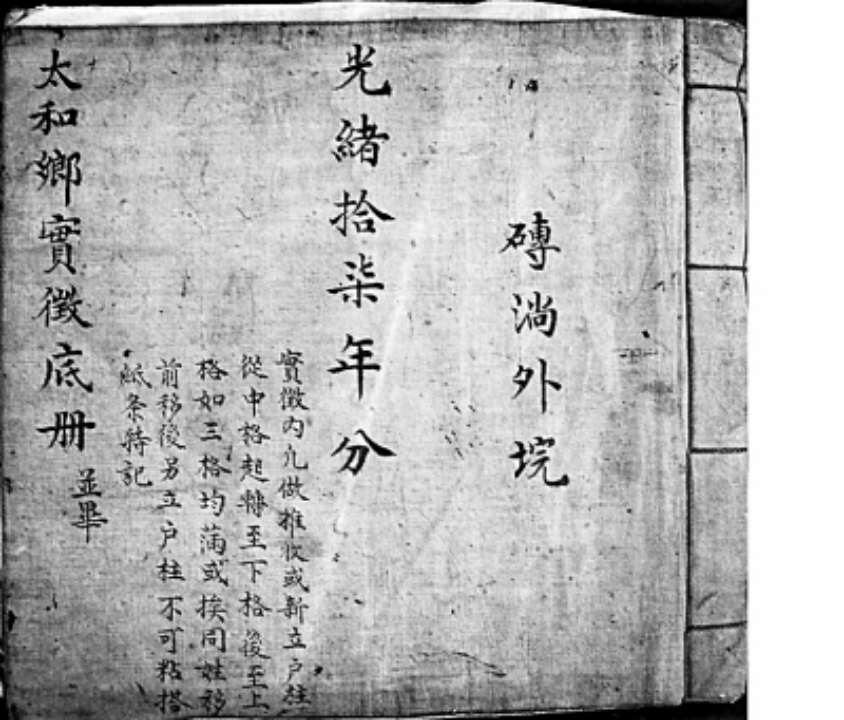 磚淌外垸
光緒拾柒年分
實徵內凢做推收或新立户柱
從中格起轉至下格後至上
格如三格均蒲或挨同姓移
前移後另立户柱不可粘搭
紙条特記
太和鄉實徵底冊
並畢